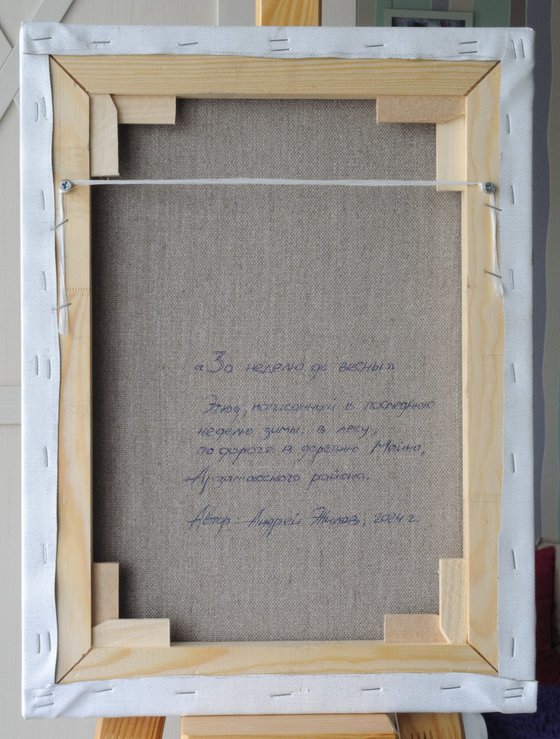 «За неделю до весны»
Этюд, написанный в последнюю
неделю зимы, в лесу,
по дороге в деревню Майна,
Арзамасского района.
Автор: Андрей Жилов, 2024 г.